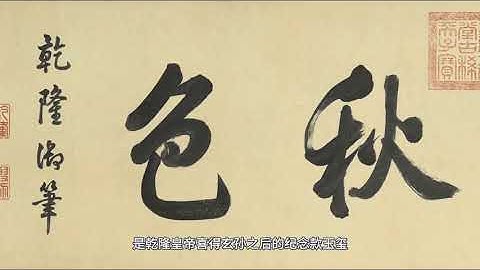 秋色
乾隆御筆
是乾隆皇帝喜得玄孙之后的纪念款玉玺